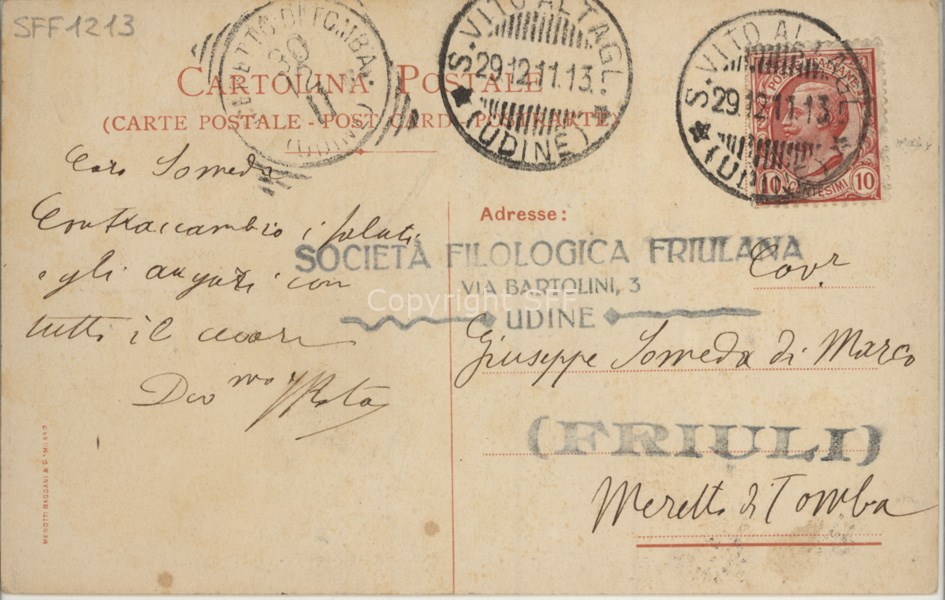 SFF1213
CARTOLINA POSTALE
(CARTE POSTALE - POST CARD - POSTKARTE)
MERETTO DI TOMBA
(UDINE)
S. VITO AL TAGL.
29.12.11.13.
(UDINE)
S. VITO AL TAGL
29.12.11.13
(UDINE)
10 CENTESIMI 10
Caro Someda
Contraccambio i saluti
e gli auguri con
tutto il cuore
Dev mo Rota
Adresse:
SOCIETÀ FILOLOGICA FRIULANA
VIA BARTOLINI, 3
UDINE
Copyright SFF
Cavr
Giuseppe Someda di Marco
(FRIULI)
Meretto di Tomba